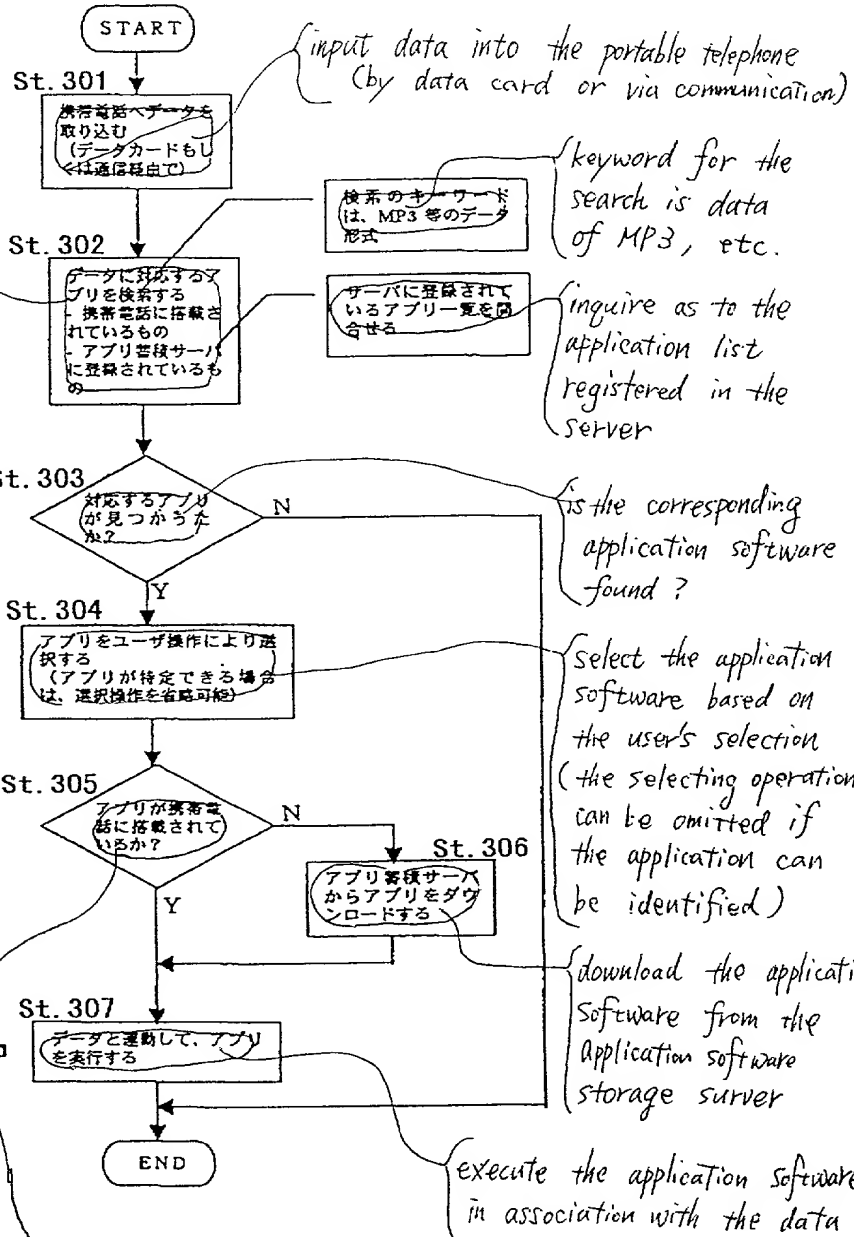 START
St. 301
携帯電話へデータを
取り込む
(データカードもし
くは通信経由で)
input data into the portable telephone
(by data card or via communication)
St. 302
データに対応するア
プリを検索する
- 携帯電話に搭載さ
れているもの
- アプリ蓄積サーバ
に登録されているも
の
検索のキーワード
は、MP3 等のデータ
形式
keyword for the
search is data
of MP3, etc.
サーバに登録されて
いるアプリ一覧を問
合せる
inquire as to the
application list
registered in the
server
St. 303
対応するアプリ
が見つかうた
か?
N
Y
is the corresponding
application software
found ?
St. 304
アプリをユーザ操作により選
択する
(アプリが特定できる場合
は、選択操作を省略可能)
select the application
software based on
the user's selection
(the selecting operation
can be omitted if
the application can
be identified)
St. 305
アプリが携帯電
話に搭載されて
いるか?
N
Y
St. 306
アプリ蓄積サーバ
からアプリをダウ
ンロードする
download the applicati
software from the
application software
storage surver
St. 307
データと連動して、アプリ
を実行する
END
execute the application software
in association with the data